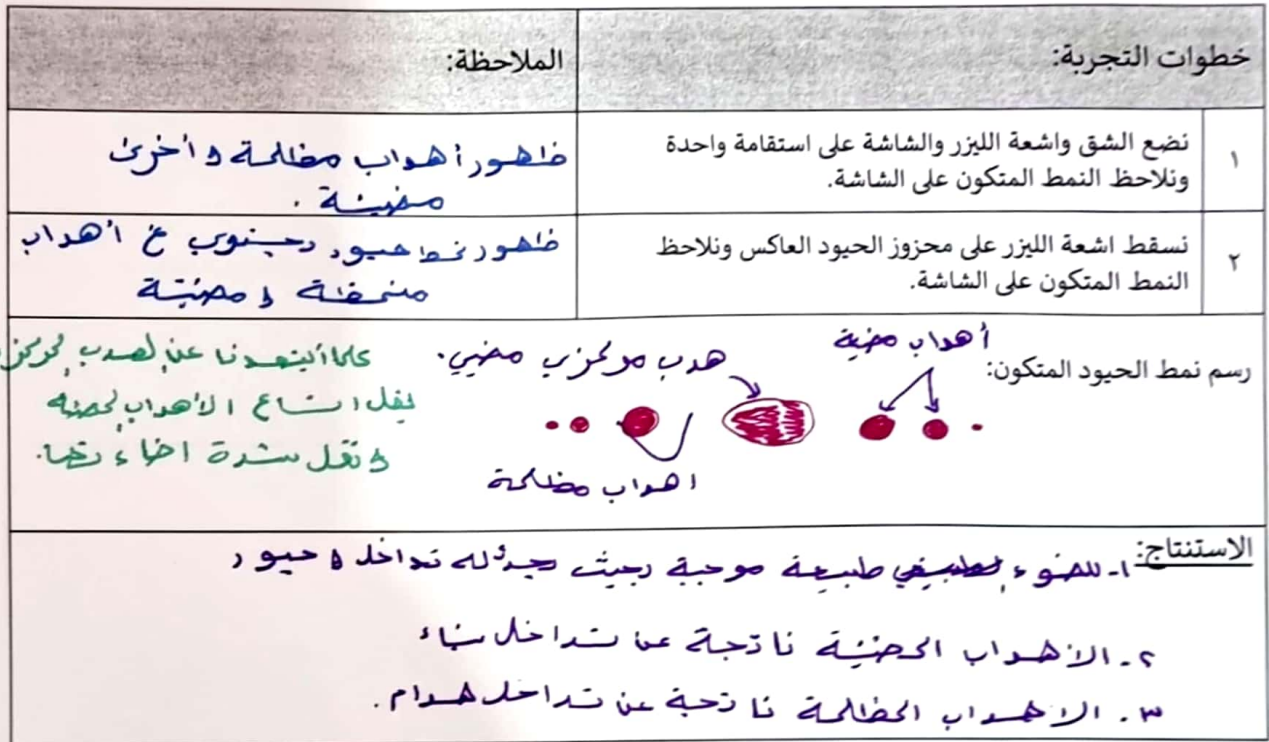 خطوات التجربة:
الملاحظة:
١
نضع الشق واشعة الليزر والشاشة على استقامة واحدة
ونلاحظ النمط المتكون على الشاشة.
ظهور أهداب مظلمة و أخرى
مضيئة .
٢
نسقط اشعة الليزر على محزوز الحيود العاكس ونلاحظ
النمط المتكون على الشاشة.
ظهور نمط حيود يحتوي ع أهداب
و مضيئة
رسم نمط الحيود المتكون:
أهداب مضية
هدب مركزي مضيي.
اهداب مظلمة
كلما أبتعدنا عن لهدب لمركزي
يقل اتساع الأهداب لمضيئه
و تقل شدة اضاءتها.
الاستنتاج:
١- للضوء طبيعة موجية بحيث يحدث له تداخل و حيود
٢. الأهداب المضيئة ناتجة عن تداخل بناء
٣. الاهداب المظلمة ناتجة عن تداخل هدام.